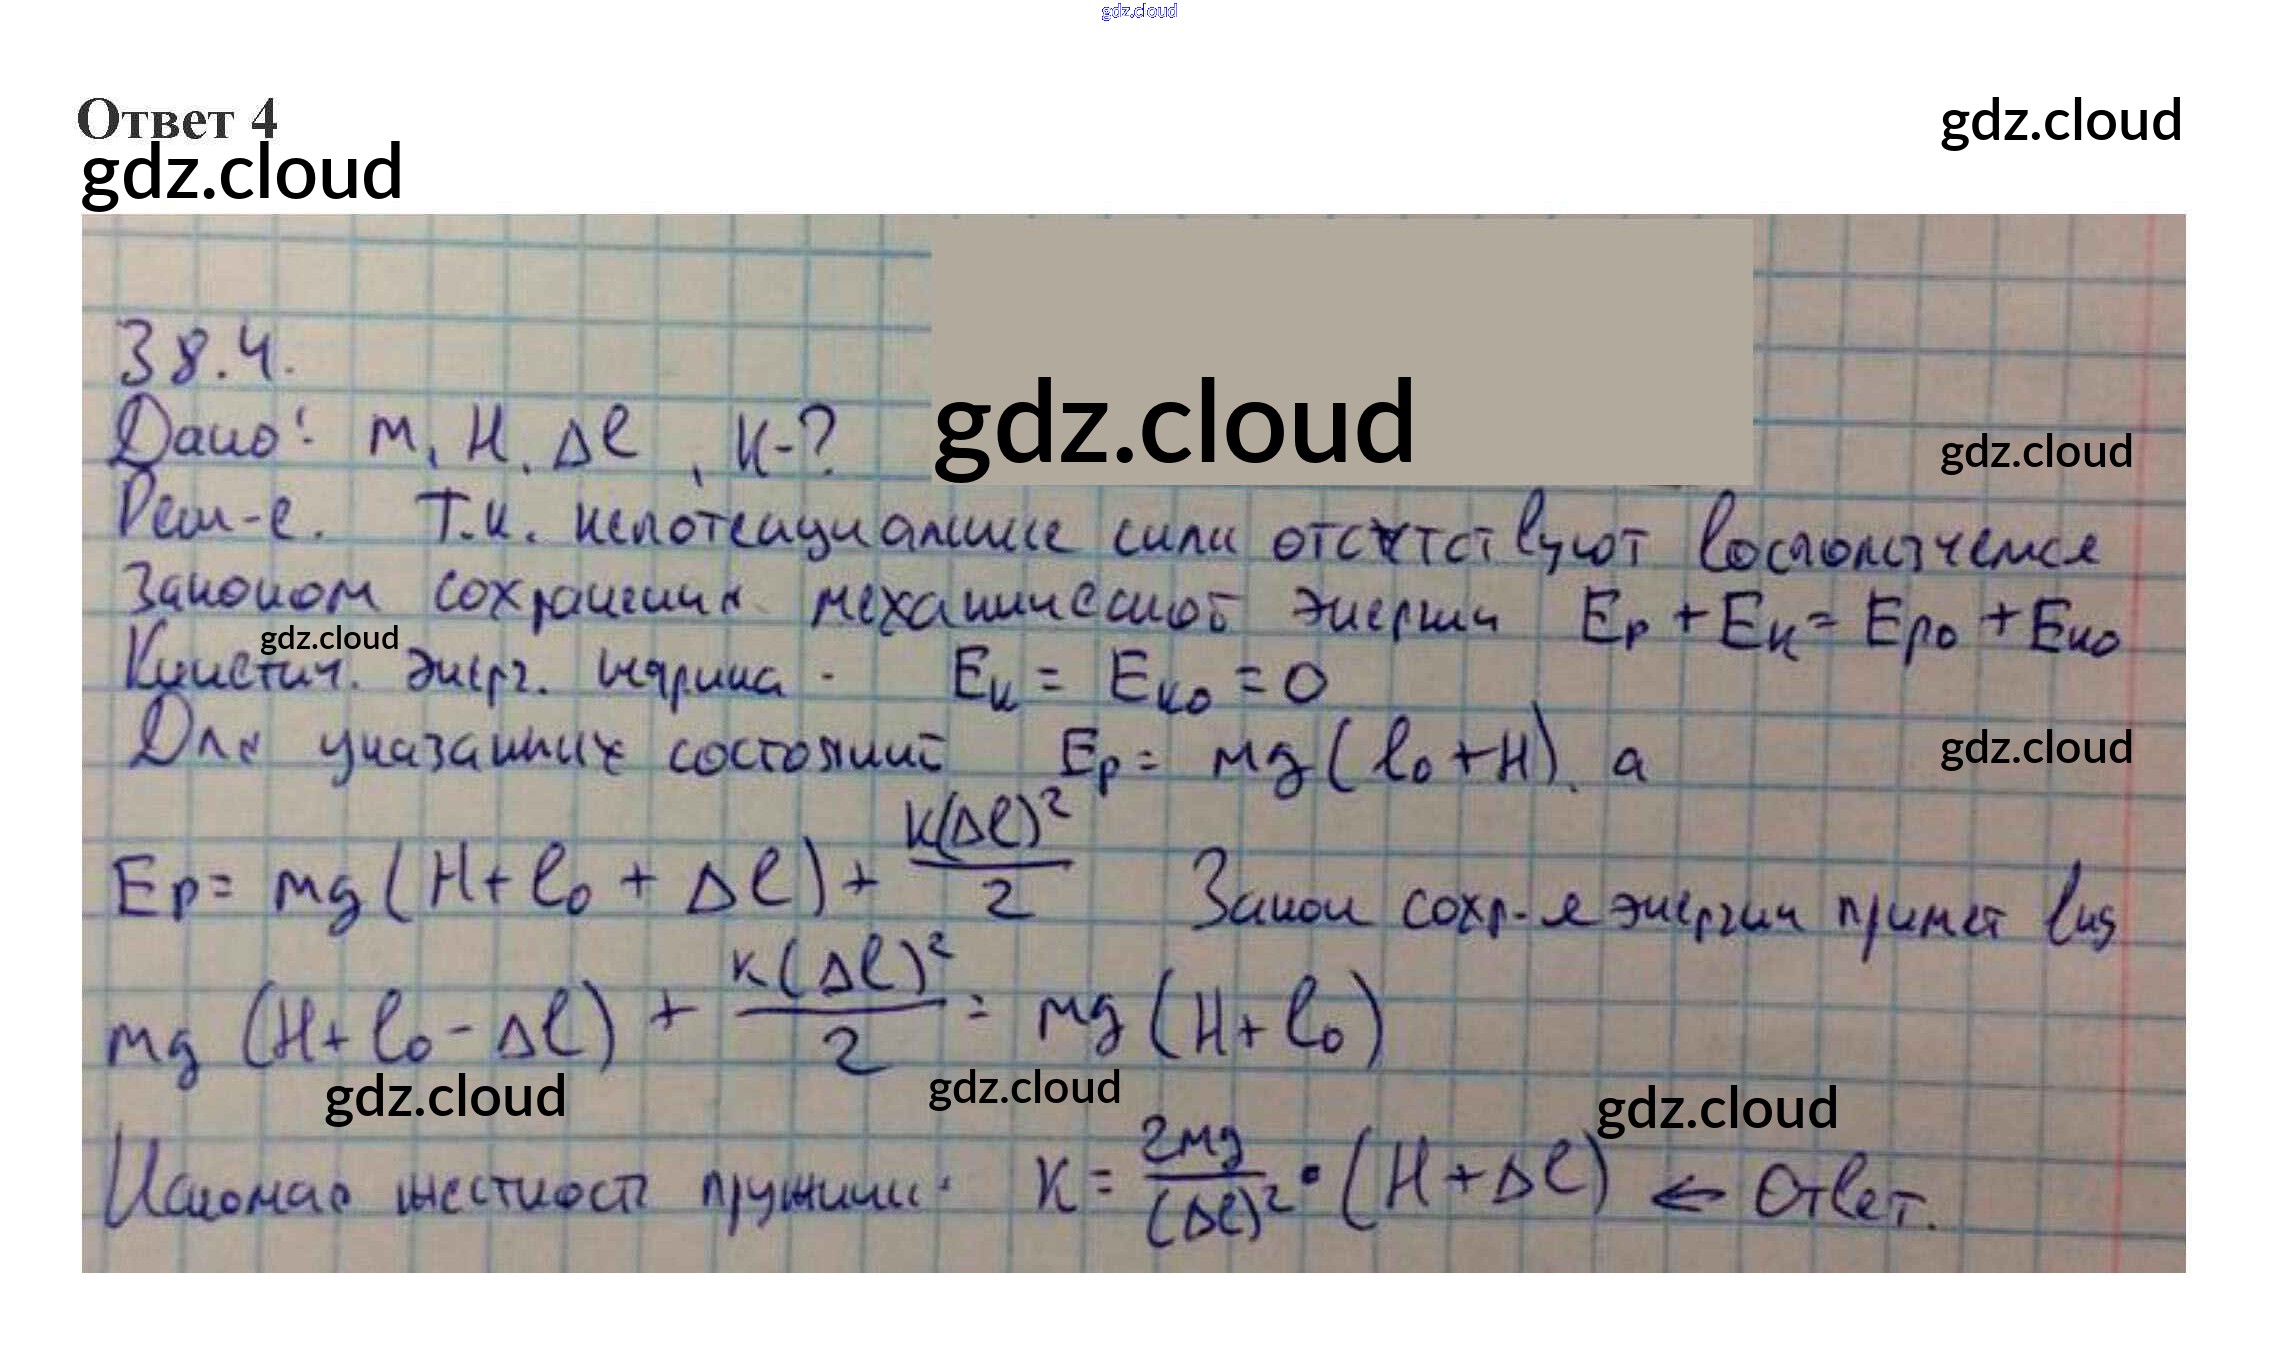 gdz.cloud
Ответ 4
gdz.cloud
gdz.cloud
38.4.
gdz.cloud
Дано: m, H, Δl, K-?
gdz.cloud
Реш-е. Т.к. непотенциальные силы отсутствуют воспользуемся
законом сохранения механической энергии Eр + Eк = Eр0 + Eк0
gdz.cloud
Кинетич. энерг. шарика - Eк = Eк0 = 0
Для указанных состояний Eр = mg(l0+H), а
gdz.cloud
Eр = mg(H + l0 + Δl) + K(Δl)²/2 Закон сохр-я энергии примет вид
mg (H + l0 - Δl) + K(Δl)²/2 = mg (H + l0)
gdz.cloud
gdz.cloud
gdz.cloud
Искомая жесткость пружины: K = 2mg/(Δl)² • (H + Δl) ← Ответ.